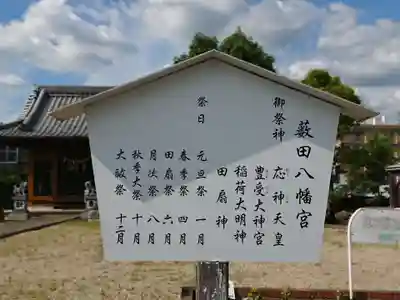 藪田八幡宮
御祭神 応神天皇
豊受大神宮
稲荷大明神
田扇神
祭日 元旦祭 一月
春季祭 四月
田扇祭 六月
月次祭 八月
秋季大祭 十月
大祓祭 十二月